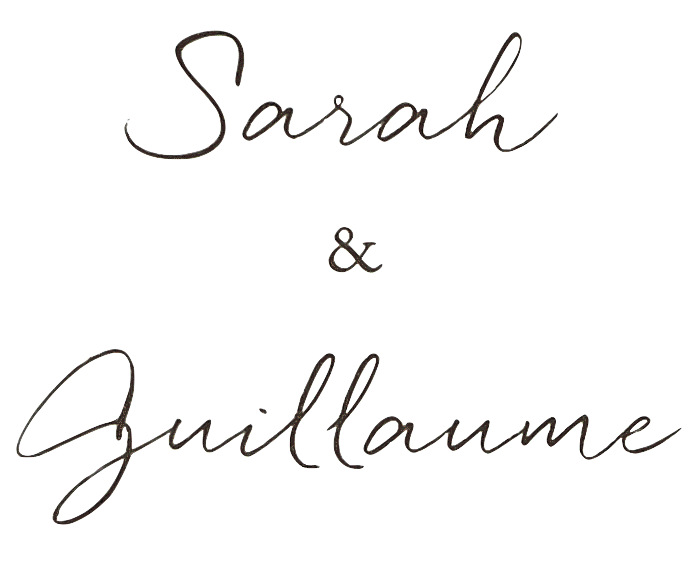 Sarah
&
Guillaume